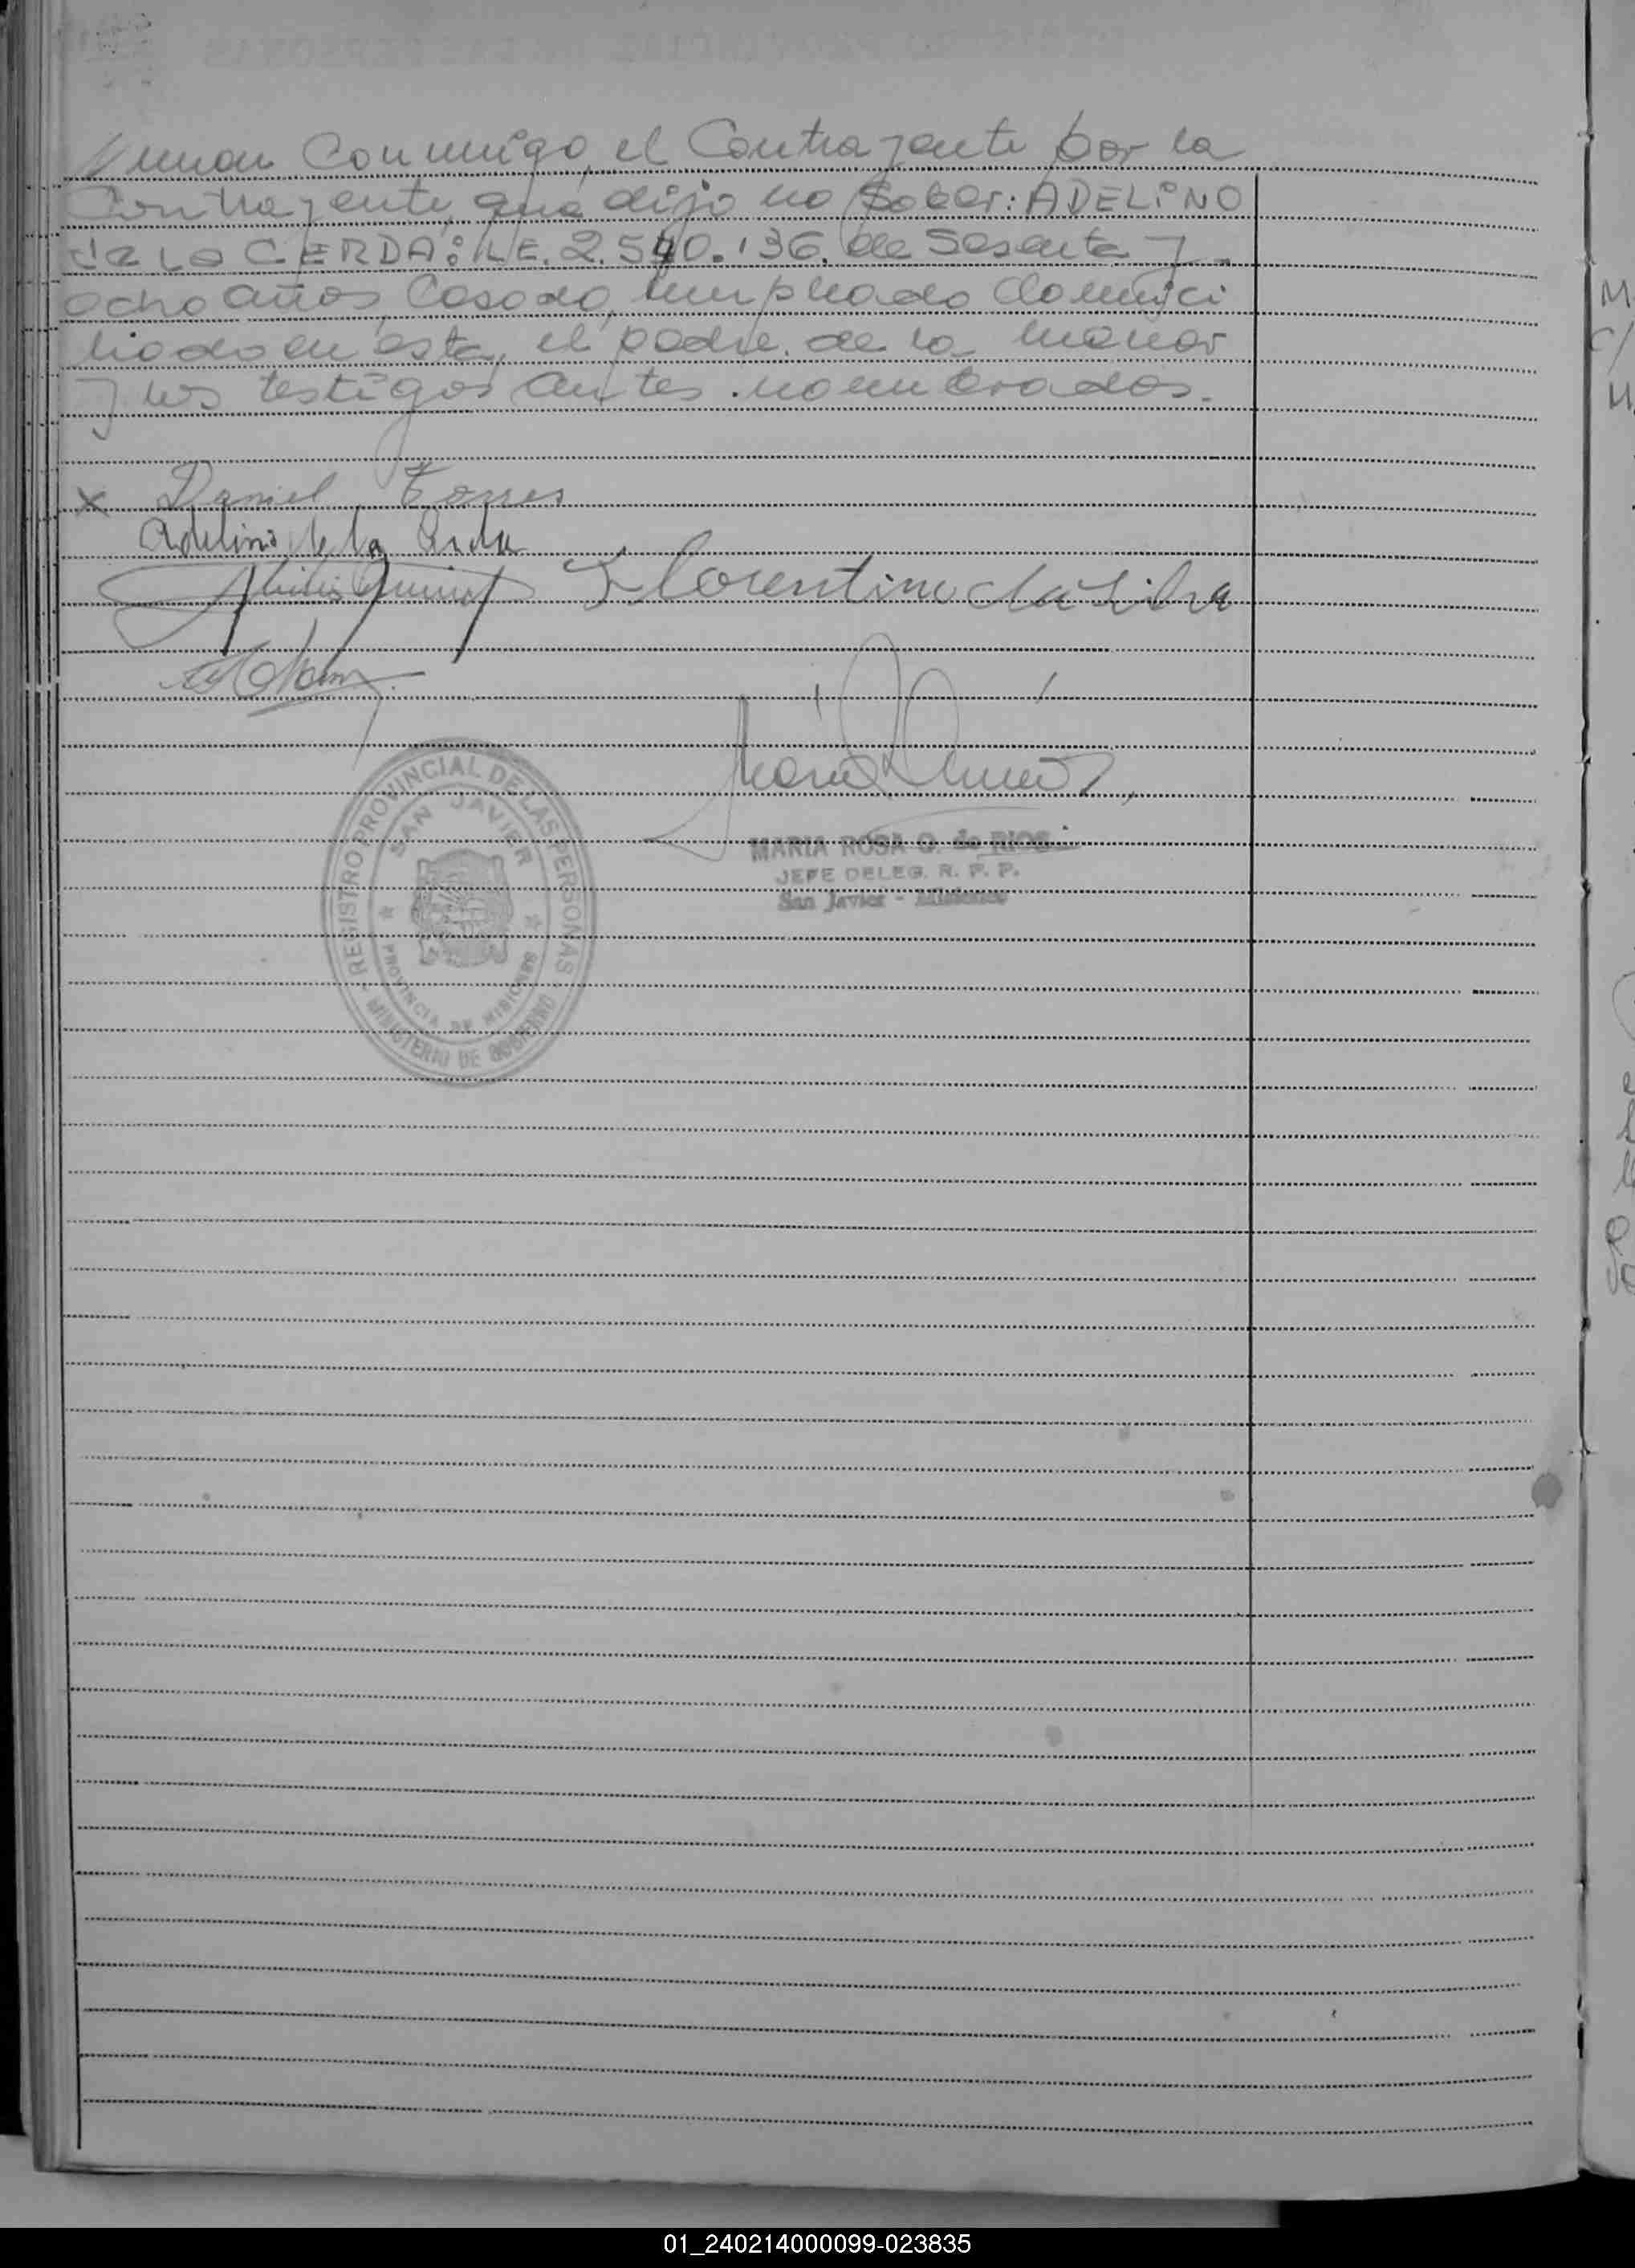 firman conmigo, el Contrayente por la
Contrayente, que dijo no saber: ADELINO
de La CERDA: L.E. 2.540.136. de Sesenta y
ocho años, Casado, empleado domici
liado en esta, el padre de la menor
y los testigos antes nombrados.
x Daniel Torres
Adelino de la Cerda
Florentino da Silva
MARIA ROSA Q. de RIOS
JEFE DELEG. R. P. P.
San Javier - Misiones
REGISTRO PROVINCIAL DE LAS PERSONAS
SAN JAVIER
PROVINCIA DE MISIONES
MINISTERIO DE GOBIERNO
01_240214000099-023835